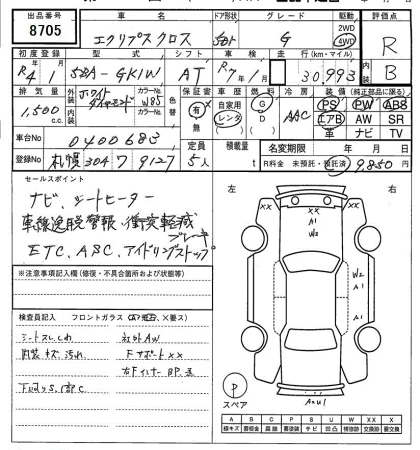 出品番号 車名 ドア形状 グレード 駆動 評価点
8705 エクリプスクロス 5D G 2WD 4WD R
初度登録 型式 シフト 車検 走行(km・マイル)
R4 1 5BA-GK1W AT R7 30,993 B
排気量 外装 ホワイトダイヤモンド カラーNo. W85 色替 保証書 車歴 燃料 冷房 装備(純正部品に限る)
1,500 c.c. 内装 カラーNo. 有 無 自家用 レンタ G AAC PS PW ABS
エアB AW SR
革 ナビ TV
車台No 0400683 定員 5人 積載量 t 名変期限 年 月 日
登録No 札幌 304 ワ 9127 R料金 未預託・預託済 9,850円
セールスポイント
ナビ、シートヒーター
車線逸脱警報、衝突軽減ブレーキ
ETC、ASC、アイドリングストップ
※注意事項記入欄(修復・不具合箇所および状態等)
検査員記入 フロントガラス
シートスレ、しわ 社外AW
内装キズ、汚れ FサポートXX
右FインナーBP送
左 右
XX XX
XX
A1
W2
W2
A1
A1
P
スペア
A B C P S U W X XX
線キズ 要板金 腐蝕 要塗装 サビ 凹凸 補修跡 交換要 交換済